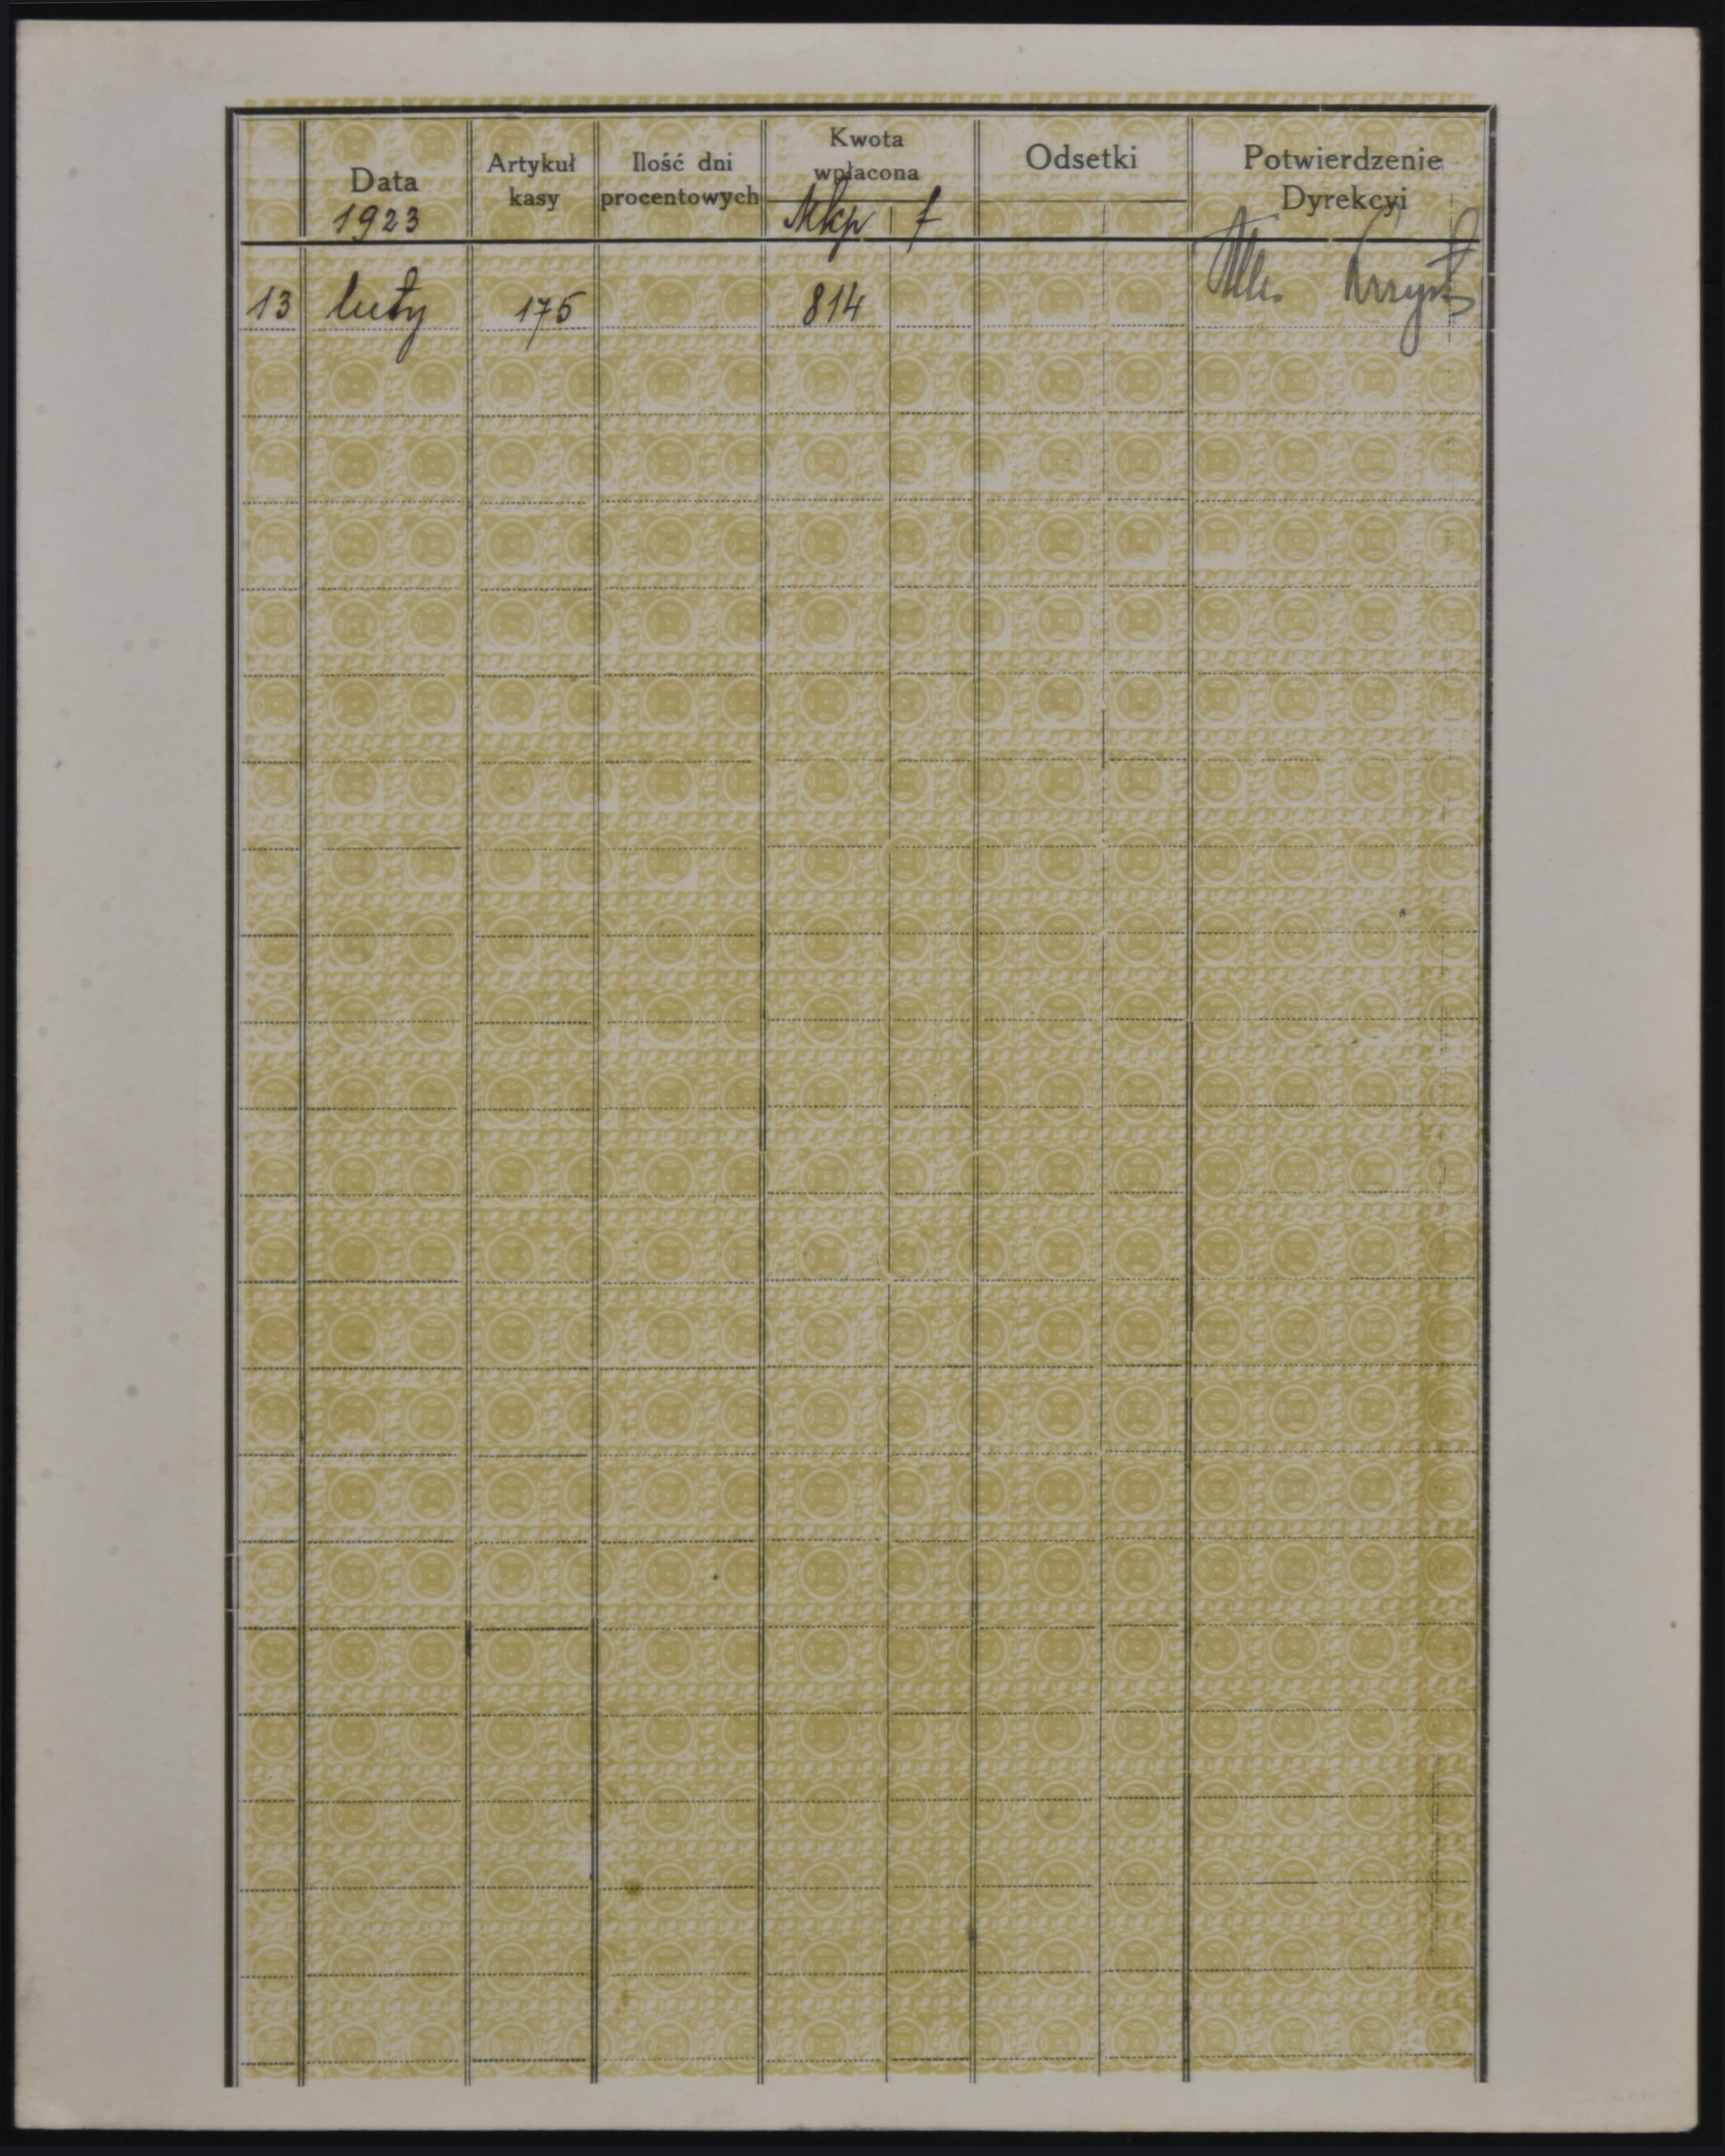 Data
1923
Artykuł
kasy
Ilość dni
procentowych
Kwota
wpłacona
Mkp f
Odsetki
Potwierdzenie
Dyrekcyi
13 luty 175 814